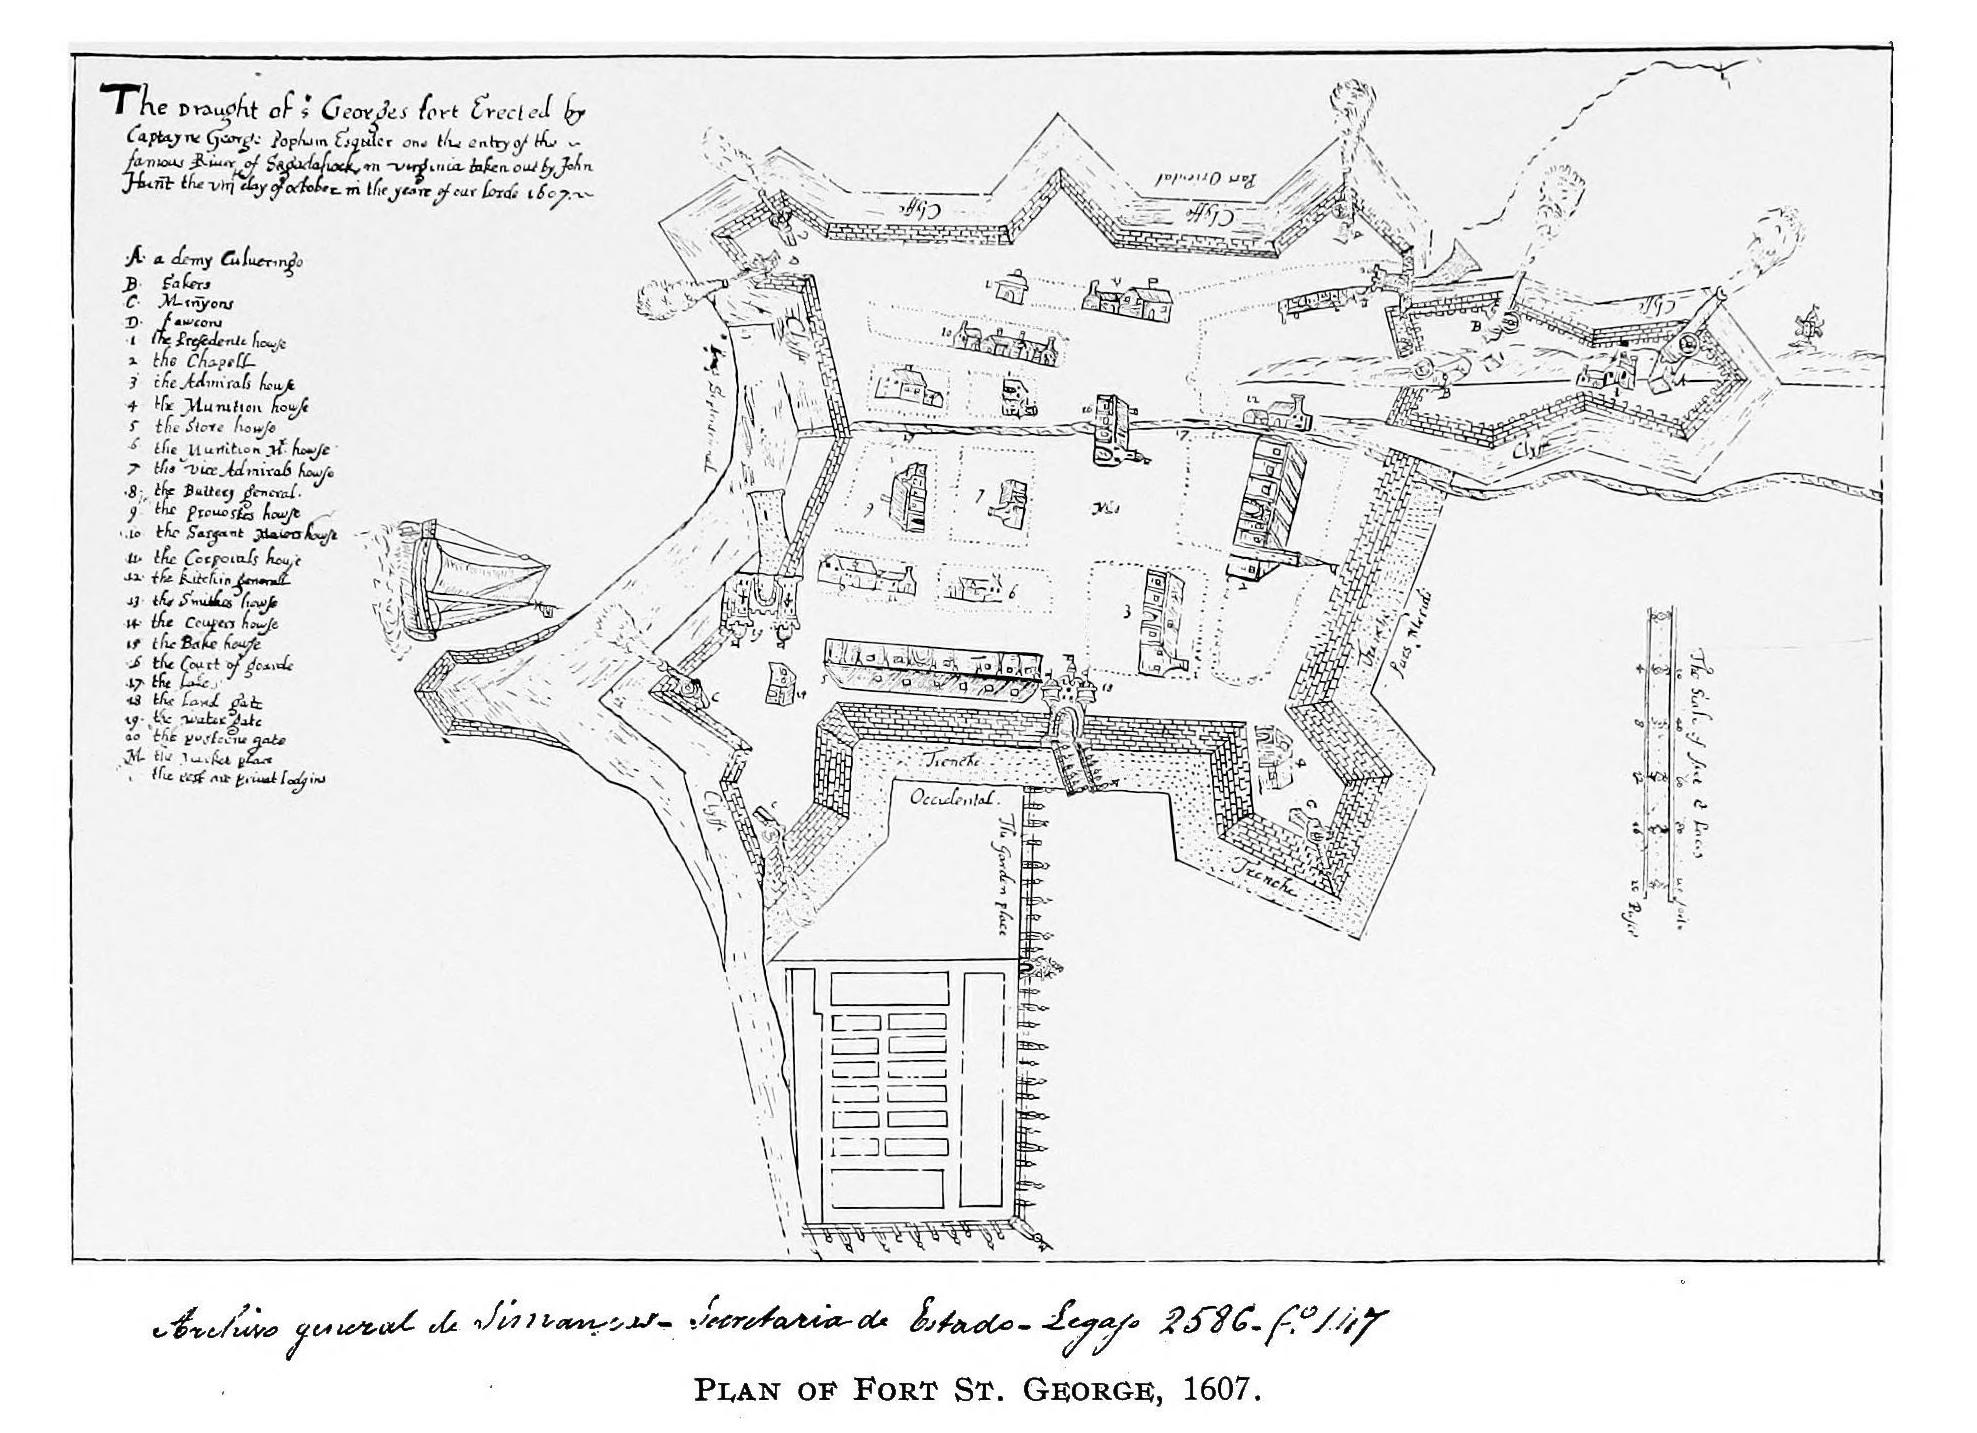 The Draught of St Georges fort Erected by
Captayne George Popham Esquier one the entry of the
famous River of Sagadahock in virginia taken out by John
Hunt the viij day of october in the yeare of our lorde 1607
A a demy Culueringe
B. Sakers
C. Minyons
D. fawcons
1 the Presedente howse
2 the Chapell
3 the Admirals howse
4 the Munition howse
5 the Store howse
6 the Munition Mr. howse
7 the vice Admirals howse
8. the Buttery general.
9 the prouostes howse
10 the Sargant Maiors howse
11 the Corporals howse
12 the kitchin generall
13 the Smithes howse
14 the Coupers howse
15 the Bake howse
16 the Court of
17 the
18 the Land gate
19 the water gate
20 the posterne gate
M the market place
the rest are privat lodgins
Pars Oriental
Clyffe
Clyffe
Clyffe
Clyff
Clyffe
Clyffe
Pars Septentrional
Trenche
Pars Merid
Trenche
Occidental.
Trenche
The Garden place
The Scale of
Archivo general de Simancas - Secretaria de Estado - Legajo 2586 - f.º 147
PLAN OF FORT ST. GEORGE, 1607.